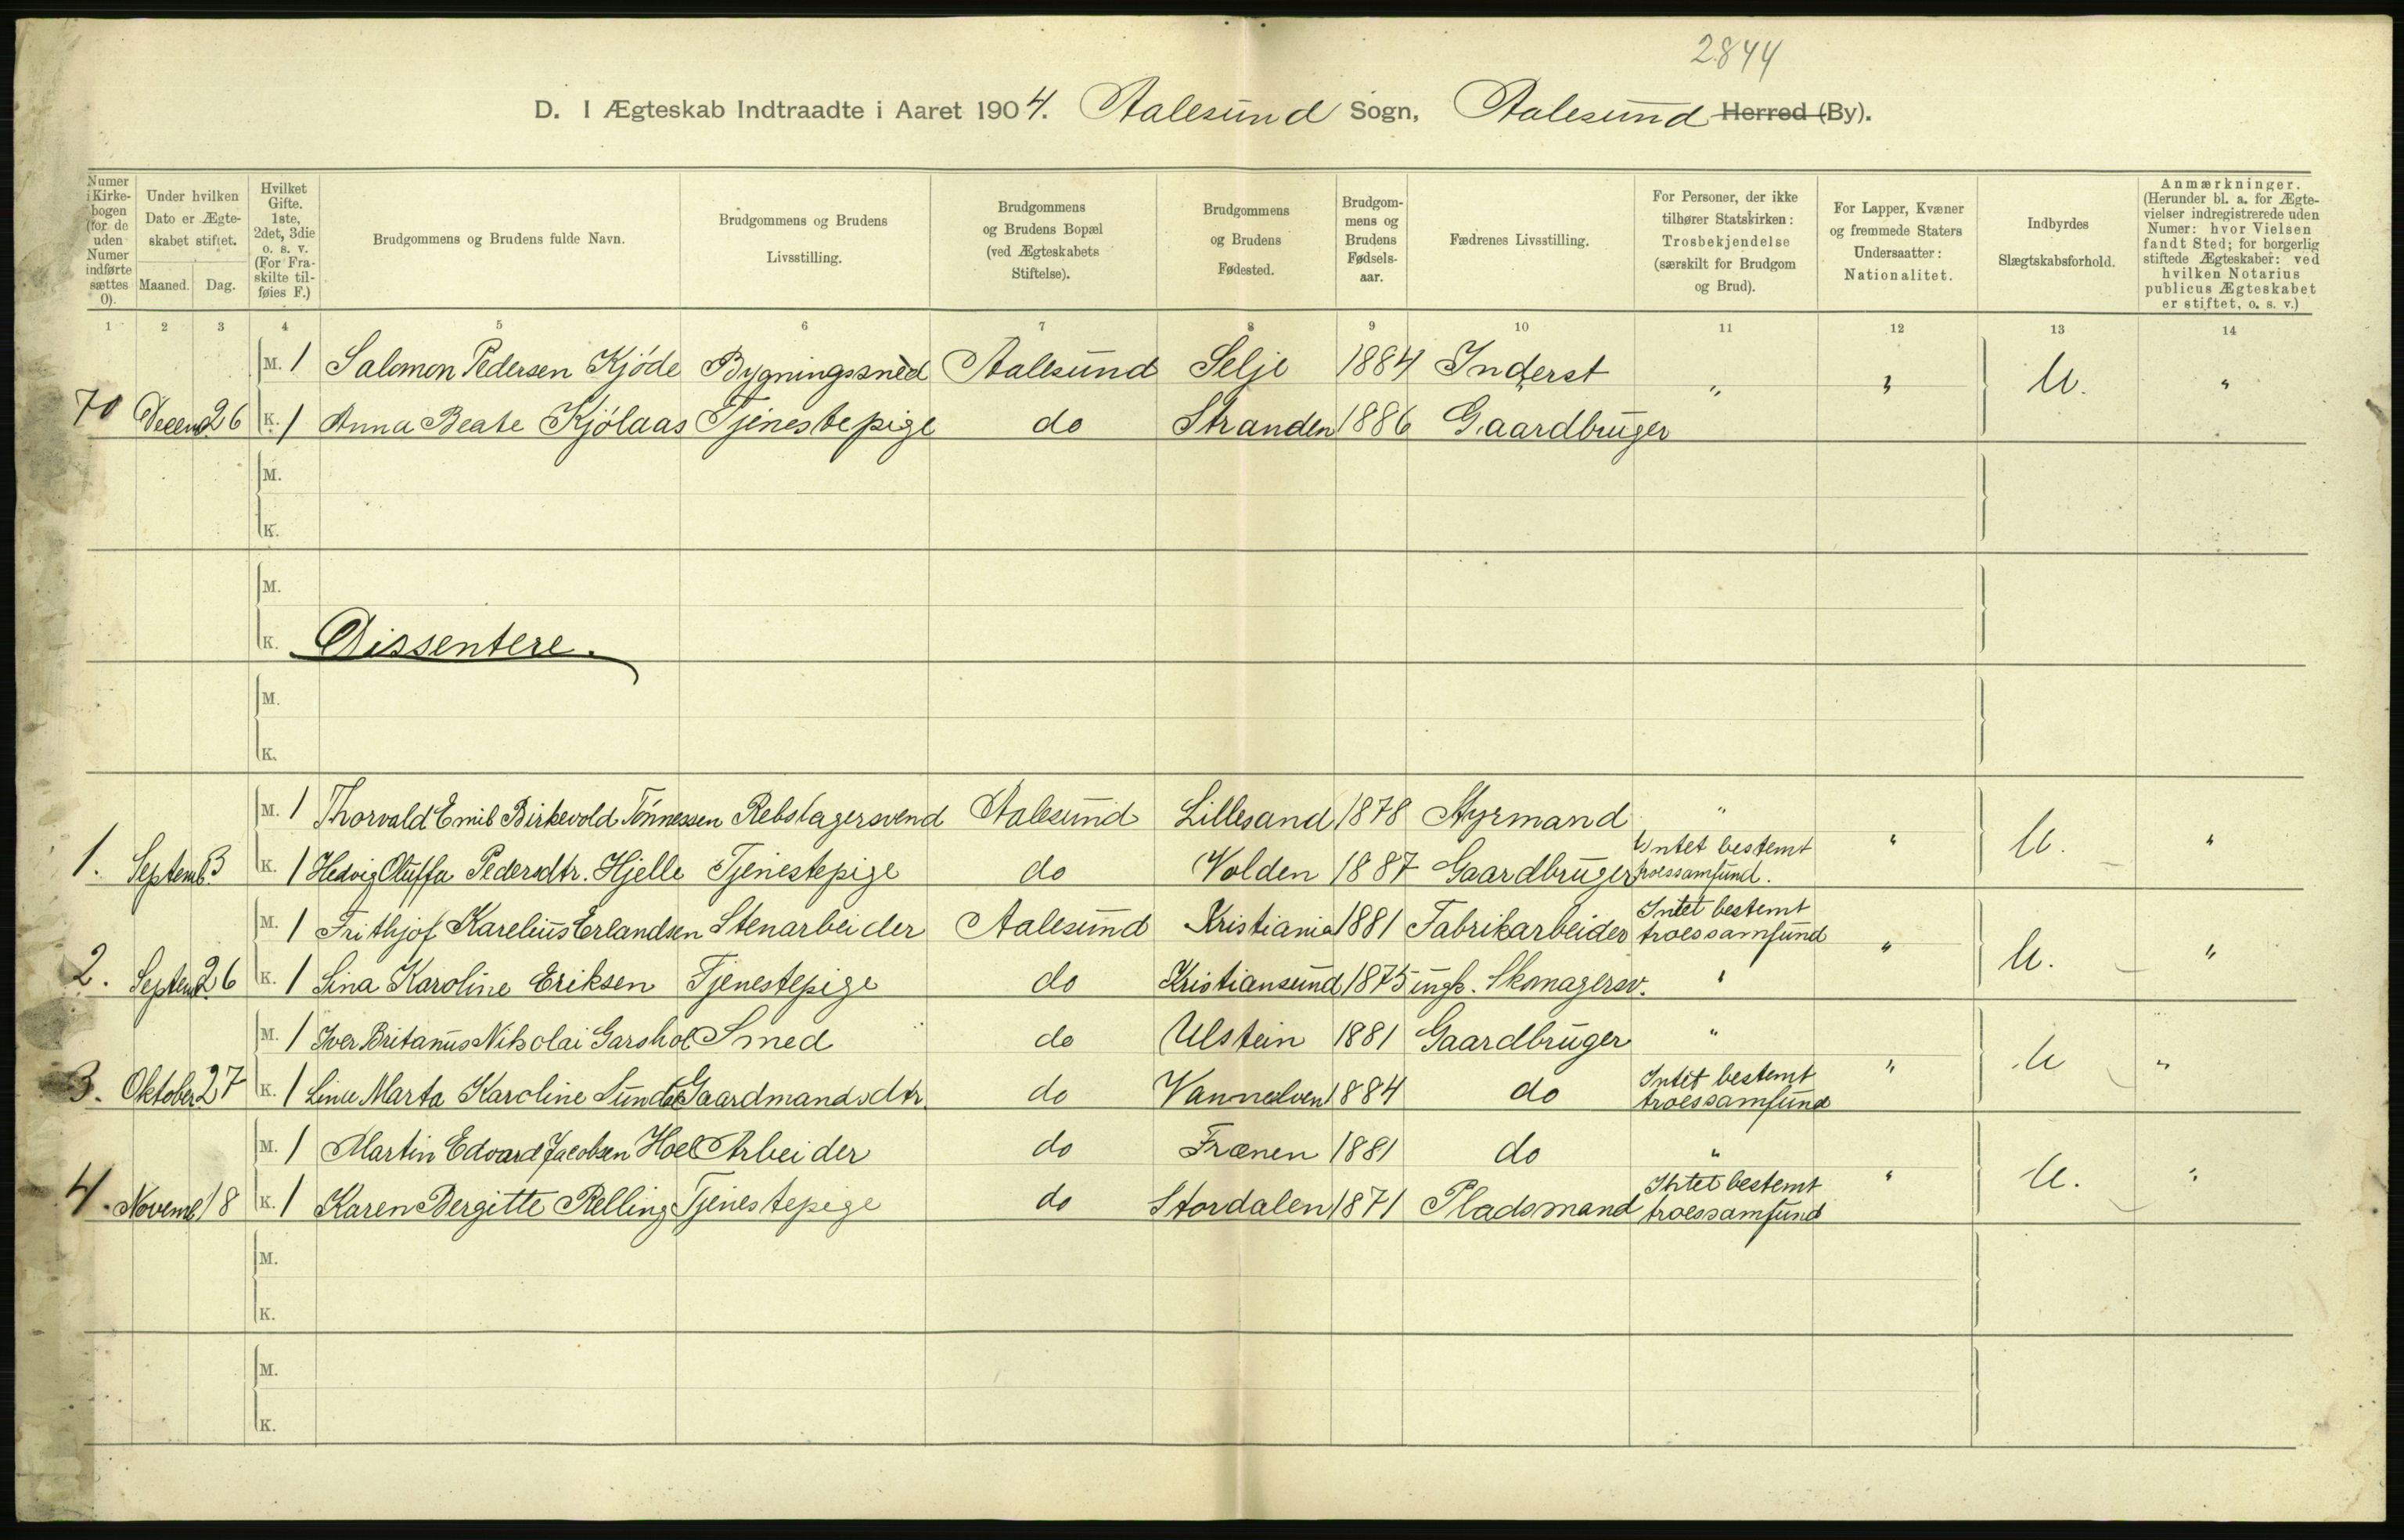 2844
D. I Ægteskab Indtraadte i Aaret 1904. Aalesund Sogn, Aalesund Herred (By).
Numer i Kirkebogen (for de uden Numer indførte sættes 0).
Under hvilken Dato er Ægteskabet stiftet.
Maaned. Dag.
Hvilket Gifte. 1ste, 2det, 3die o. s. v. (For Fraskilte tilføies F.)
Brudgommens og Brudens fulde Navn.
Brudgommens og Brudens Livsstilling.
Brudgommens og Brudens Bopæl (ved Ægteskabets Stiftelse).
Brudgommens og Brudens Fødested.
Brudgommens og Brudens Fødselsaar.
Fædrenes Livsstilling.
For Personer, der ikke tilhører Statskirken: Trosbekjendelse (særskilt for Brudgom og Brud).
For Lapper, Kvæner og fremmede Staters Undersaatter: Nationalitet.
Indbyrdes Slægtskabsforhold.
Anmærkninger. (Herunder bl. a. for Ægtevielser indregistrerede uden Numer: hvor Vielsen fandt Sted; for borgerlig stiftede Ægteskaber: ved hvilken Notarius publicus Ægteskabet er stiftet, o. s. v.)
1 2 3 4 5 6 7 8 9 10 11 12 13 14
M. 1 Salomon Pedersen Kjøde Bygningssned Aalesund Selje 1884 Inderst " " U. "
70 Decemb. 26 K. 1 Anna Beate Kjølaas Tjenestepige do Stranden 1886 Gaardbruger
M.
K.
M.
K. Dissentere.
M.
K.
M. 1 Thorvald Emil Birkevold Tønnessen Rebslagersvend Aalesund Lillesand 1878 Styrmand " " U. "
1. Septemb. 3 K. 1 Hedvig Oluffa Pedersdtr. Hjelle Tjenestepige do Volden 1887 Gaardbruger Intet bestemt troessamfund.
M. 1 Frithjof Karelius Erlandsen Stenarbeider Aalesund Kristiania 1881 Fabrikarbeider Intet bestemt troessamfund " U. "
2. Septemb. 26 K. 1 Lina Karoline Eriksen Tjenestepige do Kristiansund 1875 Skomagersv. "
M. 1 Iver Britanus Nikolai Garshol Smed do Ulstein 1881 Gaardbruger " " U "
3. Oktober 27 K. 1 Lina Marta Karoline Gaardmandsdtr. do Vannelven 1884 do Intet bestemt troessamfund
M. 1 Martin Edvard Jacobsen Hoel Arbeider do Frænen 1881 do " " U. "
4. Novemb. 18 K. 1 Karen Bergitte Relling Tjenestepige do Stordalen 1871 Pladsmand Intet bestemt troessamfund
M.
K.
M.
K.